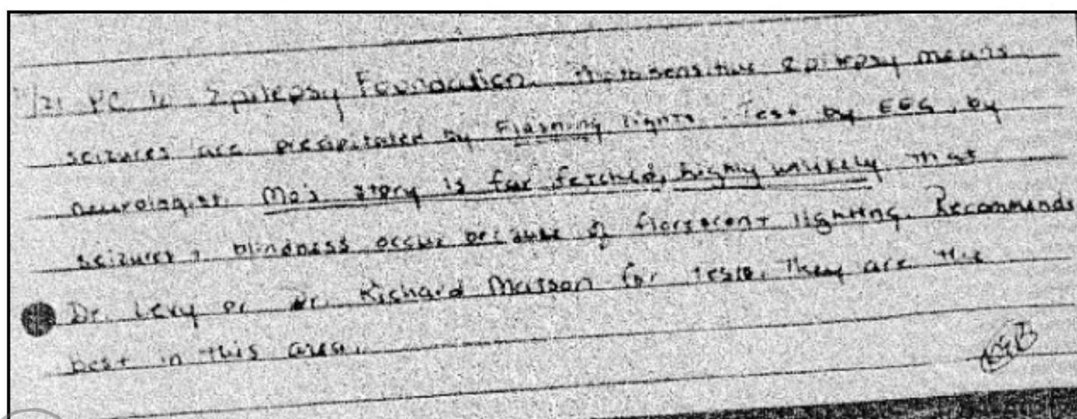 /21 PC to Epilepsy Foundation. Photosensitive epilepsy means
seizures are precipitated by flashing lights. Test by EEG, by
neurologist. Mo's story is far fetched, highly unlikely that
seizures + blindness occur because of florescent lighting. Recommends
Dr. Levy or Dr. Richard Mattson for tests. They are the
best in this area.